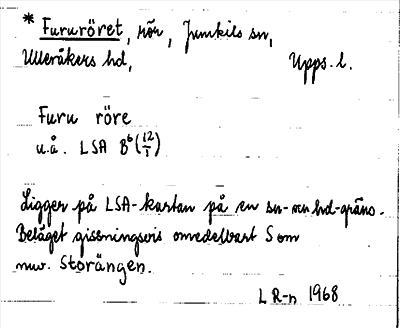 * Fururöret, rör, Jumkils sn,
Ulleråkers hd, Upps. l.
Furu röre
u.å. LSA 8⁶ (12/1)
Ligger på LSA-kartan på en sn- och hd-gräns.
Beläget gissningsvis omedelbart S om
nuv. Storängen.
L R-n 1968